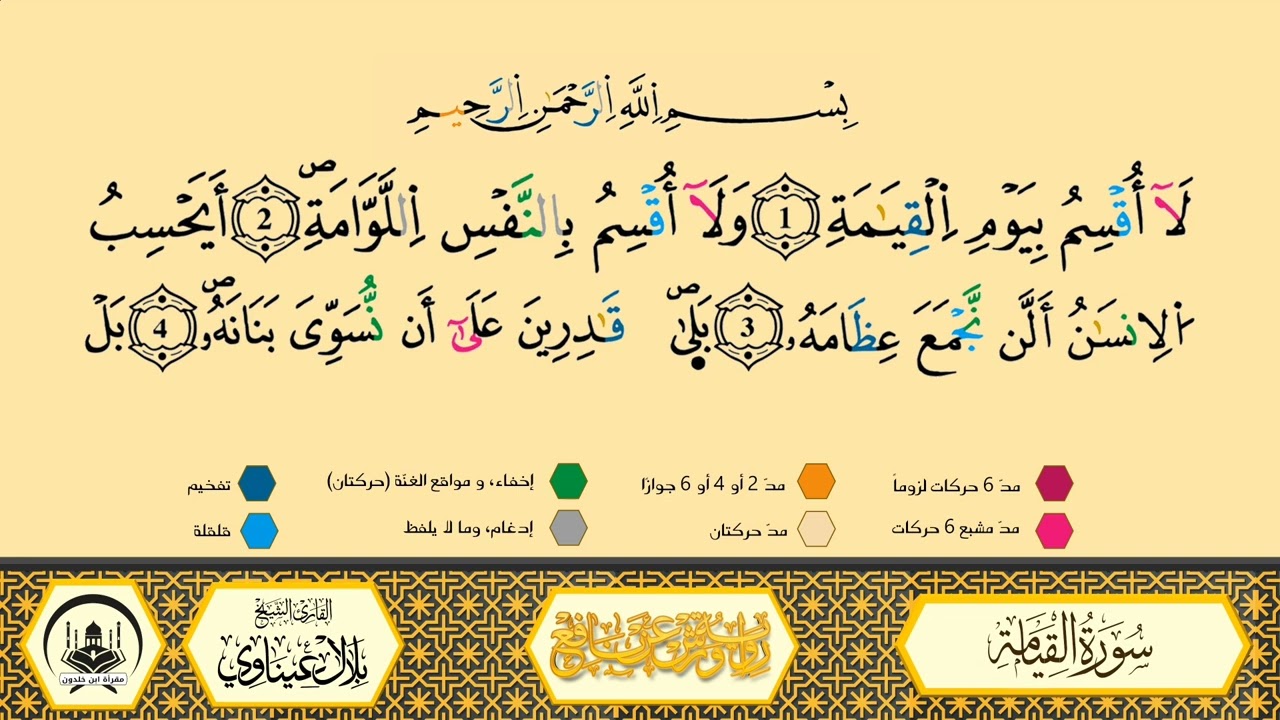 بِسْمِ اِللَّهِ اِلرَّحْمَٰنِ اِلرَّحِيمِ
لَآ أُقْسِمُ بِيَوْمِ اِلْقِيَٰمَةِ 1 وَلَآ أُقْسِمُ بِالنَّفْسِ اِللَّوَّامَةِۖ 2 أَيَحْسِبُ
اَلِانسَٰنُ أَلَّن نَّجْمَعَ عِظَامَهُۥ 3 بَلَىٰۖ قَٰدِرِينَ عَلَىٰٓ أَن نُّسَوِّىَ بَنَانَهُۥۖ 4 بَلْ
مدّ 6 حركات لزوماً
مدّ 2 أو 4 أو 6 جوازًا
إخفاء، و مواقع الغنّة (حركتان)
تفخيم
مدّ مشبع 6 حركات
مدّ حركتان
إدغام، وما لا يلفظ
قلقلة
سُورَةُ القِيَامَة
رواية ورش عن نافع
القارئ الشيخ
بلال عيناوي
مقرأة ابن خلدون